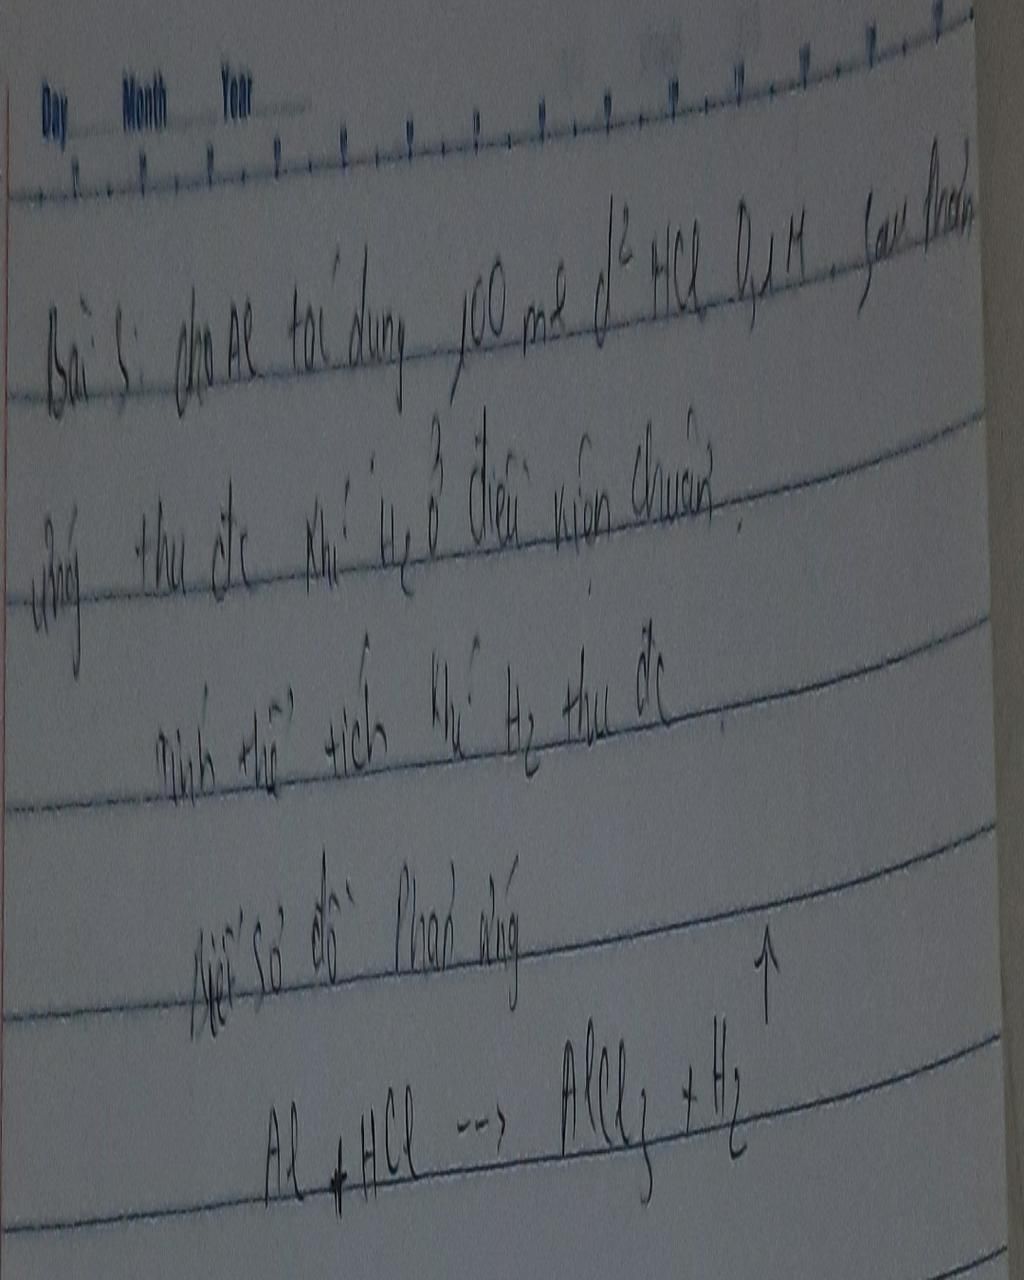 Day Month Year
Bài 5: cho Al tác dụng 100 ml d² HCl 0,1M. Sau phản
ứng thu đc khí H₂ ở điều kiện chuẩn.
Tính thể tích khí H₂ thu đc
Biết sơ đồ Phản ứng
Al + HCl --> AlCl₃ + H₂ ↑